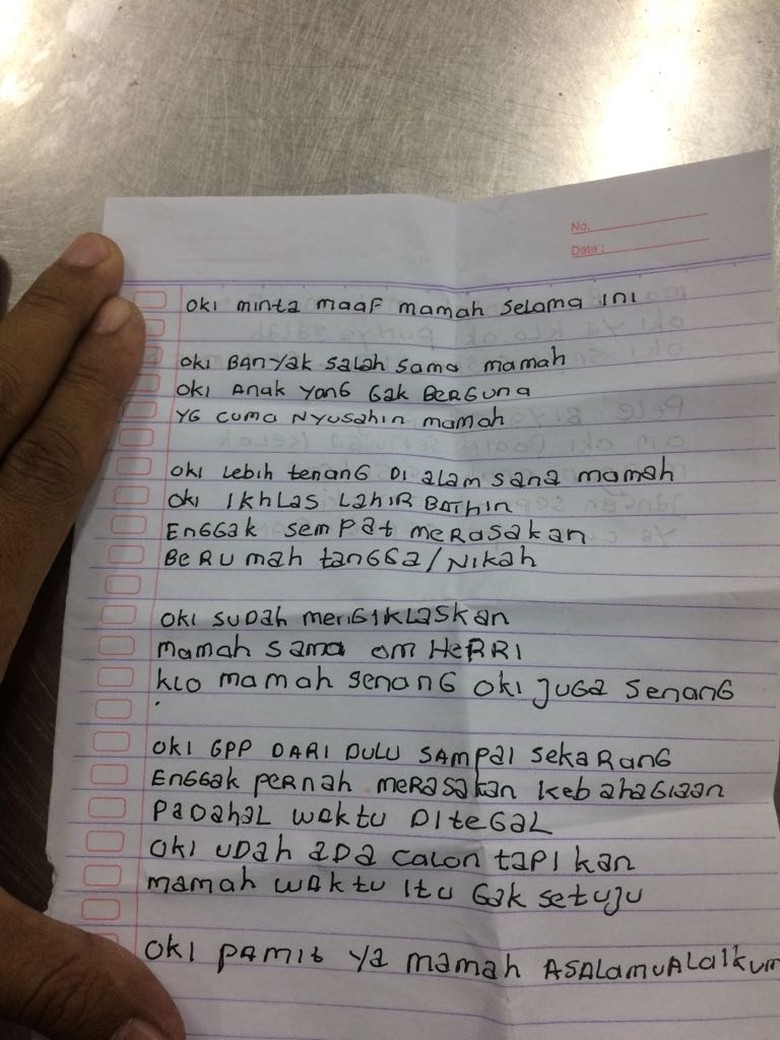 No.
Date :
OKI minta maaF mamah selama INI
OKI BANYak salah sama mamah
OKI Anak YanG Gak BerGuna
YG cuma NYusahin mamah
OKI Lebih tenanG DI alam sana mamah
OKI IKhLas LahIR BaThin
EnGGak sempat meRasakan
BeRumah tanGGa/NIkah
OKI suDah menGIKLasKan
mamah sama om HeRRI
KLO mamah senanG OKI JuGa senanG
OKI GPP DARI DULU SAMPaI sekaRanG
EnGGak peRnah meRasakan kebahaGIaan
PaDahaL waktu DIteGaL
OKI uDah aDa caLon tapI kan
mamah waktu Itu Gak setuJu
OKI PAMIt Ya mamah ASALamuALaIkum